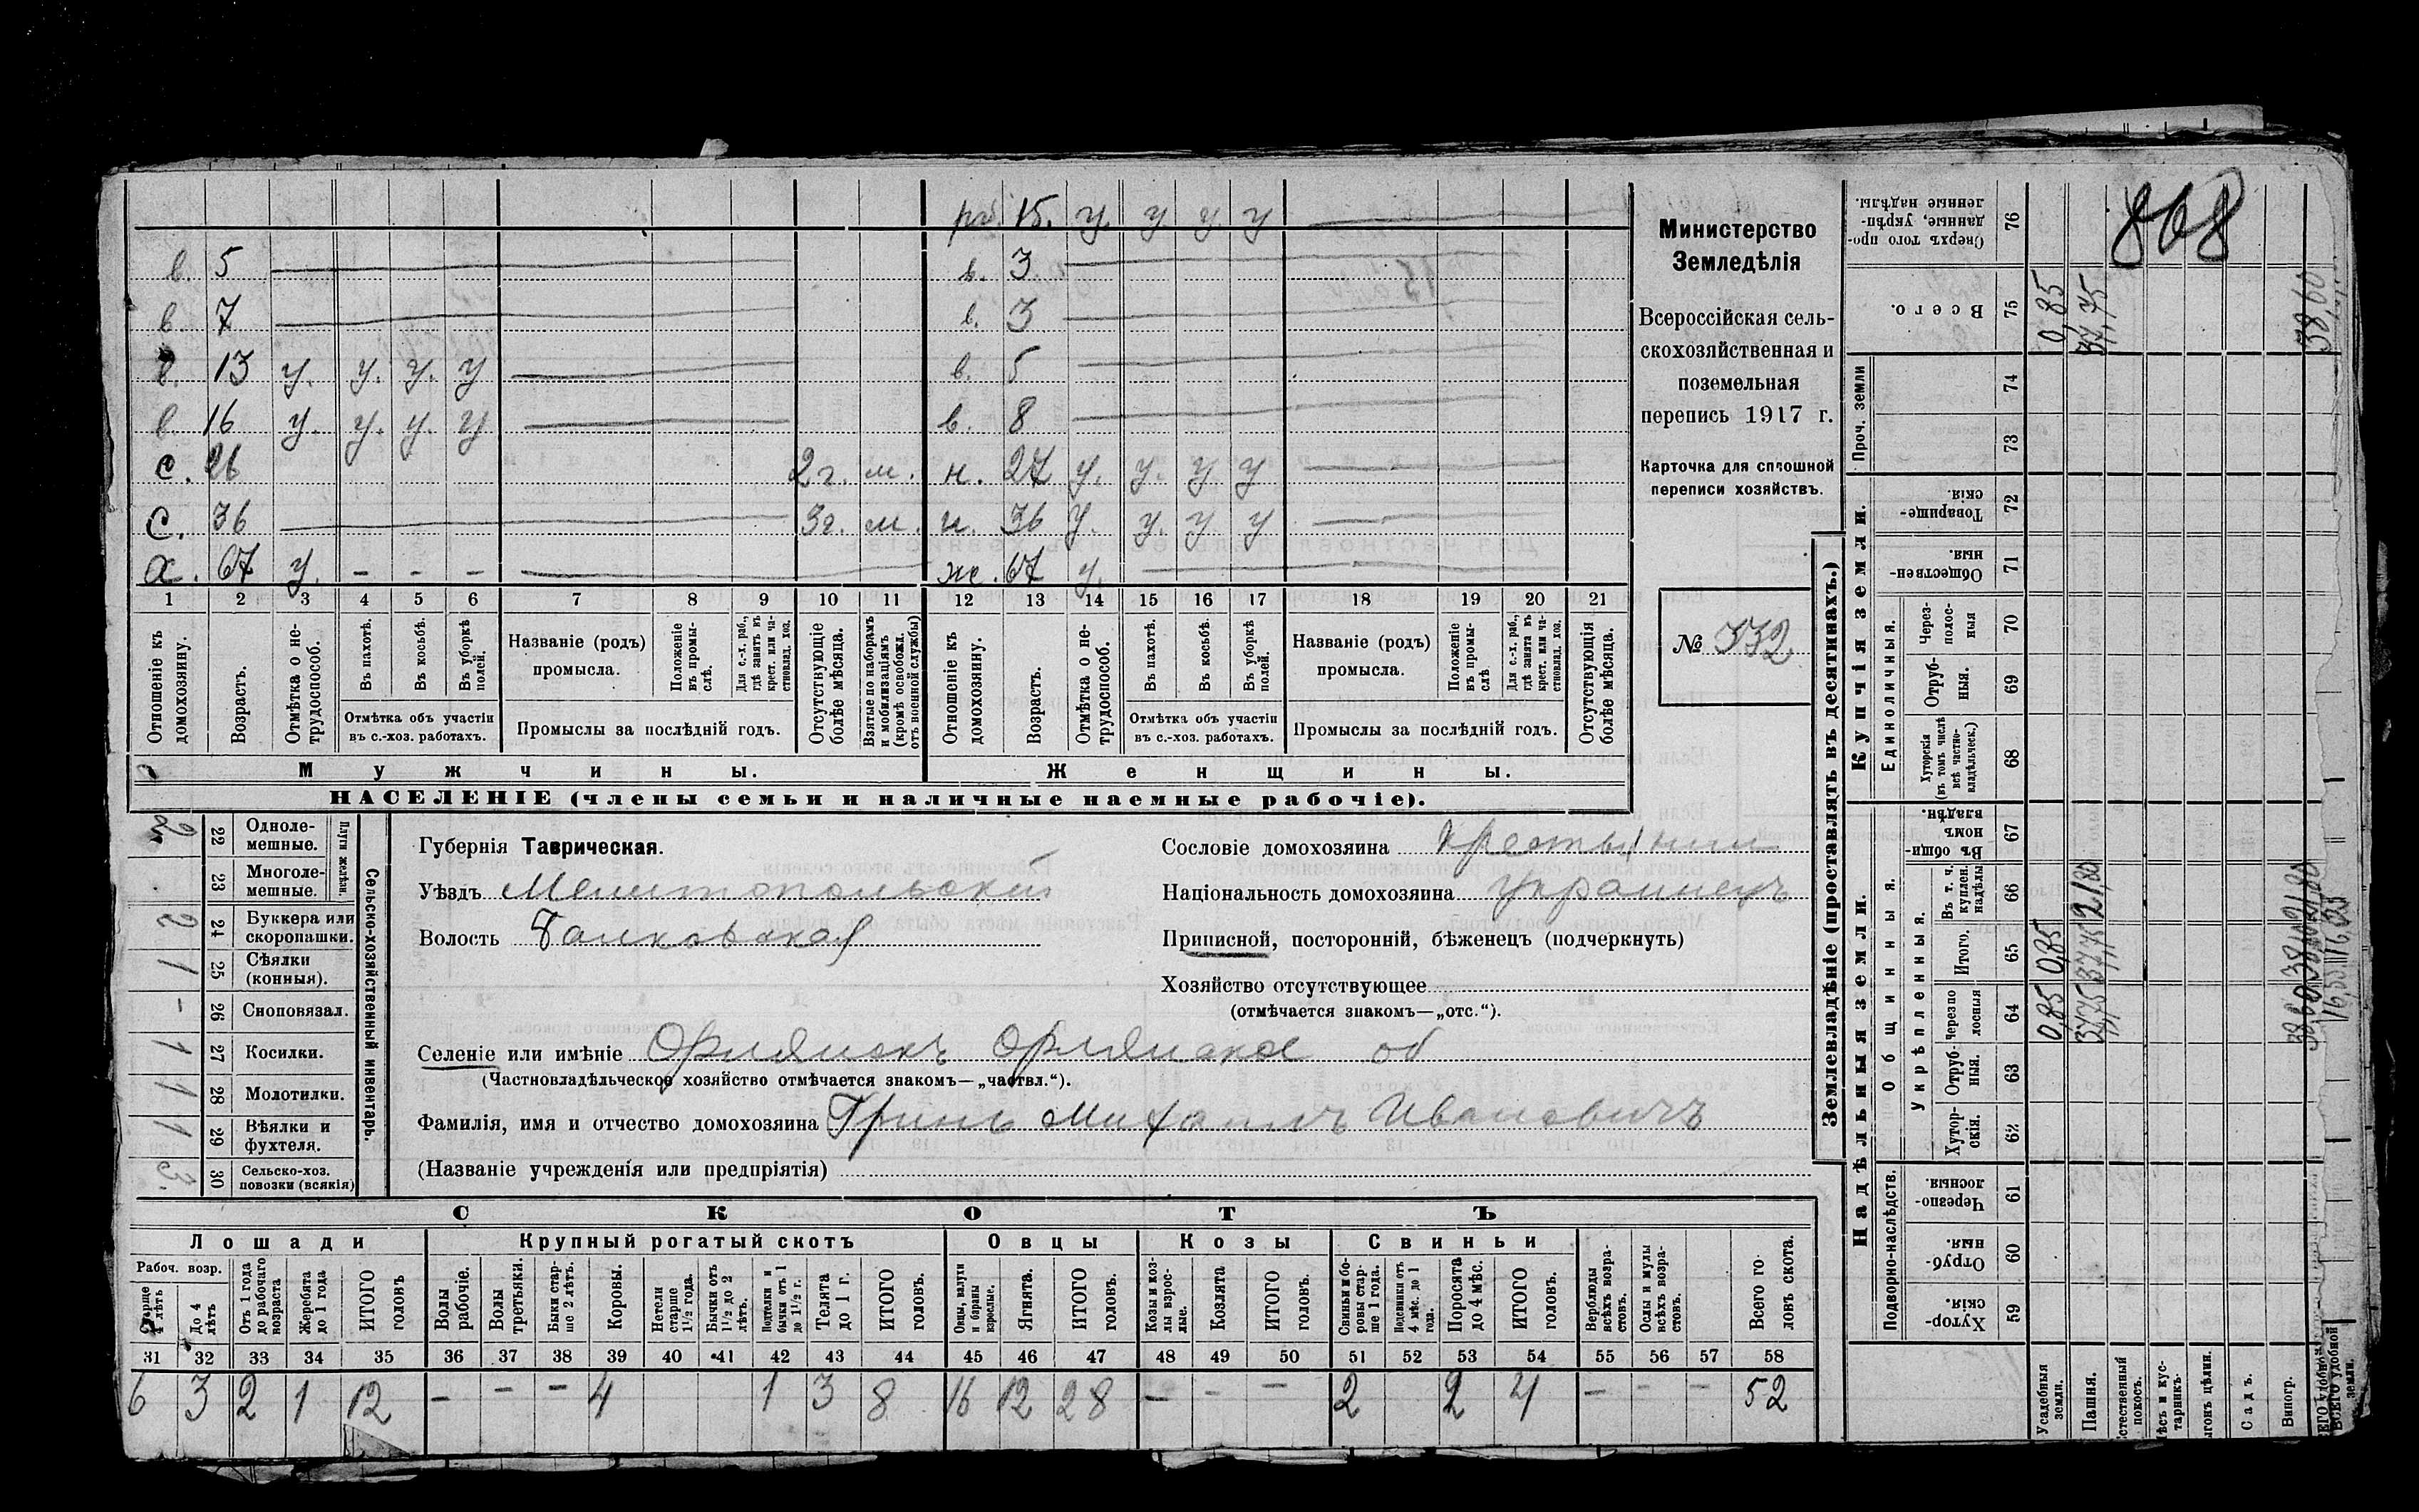 рб. 15. у. у. у. у
в. 5 в. 3
в. 7 в. 3
в. 13 у. у. у. у в. 5
в. 16 у. у. у. у в. 8
с. 26 2г. м. н. 27 у. у. у у
с. 36 3г. м. н. 36 у. у. у у
х. 67 у. - - - ж. 67 у.
1 2 3 4 5 6 7 8 9 10 11 12 13 14 15 16 17 18 19 20 21
Отношеніе къ домохозяину.
Возрастъ.
Отмѣтка о не-трудоспособ.
Въ пахотѣ.
Въ косьбѣ.
Въ уборкѣ полей.
Отмѣтка объ участіи въ с.-хоз. работахъ.
Названіе (родъ) промысла.
Положеніе въ промы-слѣ.
Для с.-х. раб., гдѣ занятъ въ крест. или ча-стновлад. хоз.
Промыслы за послѣдній годъ.
Отсутствующіе болѣе мѣсяца.
Взятые по наборамъ и мобилизаціямъ (кромѣ освобожд. отъ военной службы)
Отношеніе къ домохозяину.
Возрастъ.
Отмѣтка о не-трудоспособ.
Въ пахотѣ.
Въ косьбѣ.
Въ уборкѣ полей.
Отмѣтка объ участіи въ с.-хоз. работахъ.
Названіе (родъ) промысла.
Положеніе въ промы-слѣ
Для с.-х. раб., гдѣ занята въ крест. или ча-стновлад. хоз.
Промыслы за послѣдній годъ.
Отсутствующія болѣе мѣсяца.
Мужчины. Женщины.
НАСЕЛЕНІЕ (члены семьи и наличные наемные рабочіе).
Министерство
Земледѣлія
Всероссійская сель-
скохозяйственная и
поземельная
перепись 1917 г.
Карточка для сплошной
переписи хозяйствъ.
№ 332
Сельско-хозяйственный инвентарь.
Плуги желѣзн.
2 22 Одноле-мешные.
23 Многоле-мешные.
2 24 Буккера или скоропашки.
1 25 Сѣялки (конныя).
- 26 Сноповязал.
1 27 Косилки.
1 28 Молотилки.
1 29 Вѣялки и фухтеля.
3. 30 Сельско-хоз. повозки (всякія)
Губернія Таврическая.
Уѣздъ Мелитопольский
Волость
Сословіе домохозяина крестьянин
Національность домохозяина украинецъ
Приписной, посторонній, бѣженецъ (подчеркнуть)
Хозяйство отсутствующее
(отмѣчается знакомъ—„отс.“).
Селеніе или имѣніе Орлянскъ Орлянское об
(Частновладѣльческое хозяйство отмѣчается знакомъ—„частвл.“).
Фамилія, имя и отчество домохозяина Гринь Михаилъ Ивановичъ
(Названіе учрежденія или предпріятія)
СКОТЪ
Лошади Крупный рогатый скотъ Овцы Козы Свиньи
Рабоч. возр.
Старше 4 лѣтъ
До 4 лѣтъ
Отъ 1 года до рабочаго возраста
Жеребята до 1 года
ИТОГО головъ
Волы рабочіе.
Волы третьяки.
Быки стар-ше 2 лѣтъ.
Коровы.
Нетели старше 1½ года.
Бычки отъ 1½ до 2 лѣтъ.
Подтелки и бычки отъ 1 до 1½ г.
Телята до 1 г.
ИТОГО головъ.
Овцы, валухи и бараны взрослые.
Ягнята.
ИТОГО головъ.
Козы и коз-лы взрос-лые.
Козлята
ИТОГО головъ.
Свиньи и бо-ровы стар-ше 1 года.
Подсвинки отъ 4 мѣс. до 1 года.
Поросята до 4 мѣс.
ИТОГО головъ.
Верблюды всѣхъ возра-стовъ.
Ослы и мулы всѣхъ возра-стовъ.
Всего го-ловъ скота.
31 32 33 34 35 36 37 38 39 40 41 42 43 44 45 46 47 48 49 50 51 52 53 54 55 56 57 58
6 3 2 1 12 - - - 4 1 3 8 16 12 28 - - - 2 2 4 - - - 52
Землевладѣніе (проставлять въ десятинахъ.)
Надѣльныя земли. Купчія земли. Проч. земли
Подворно-наслѣдств.
Общинныя.
Укрѣпленныя.
Единоличныя.
808
76 Сверхъ того про-данные, укрѣп-ленные надѣлы.
75 Всего. 0,85 37,75 38,60
74
73
72 Товарище-скія.
71 Обществен-ныя.
70 Через-полос-ныя
69 Отруб-ныя.
68 Хуторскія (въ томъ числѣ всѣ частно-владѣльческ.)
67 Въ общи-номъ владѣн.
66 Въ т. ч. куплен. надѣлы 21,80
65 Итого. 0,85 37,75
64 Черезпо лосныя 0,85 37,75 38,60
63 Отруб-ныя.
62 Хутор-скія.
61 Черезпо-лосныя.
60 Отруб-ныя.
59 Хутор-скія.
Усадебныя земли.
Пашня.
Садъ.
Виногр.